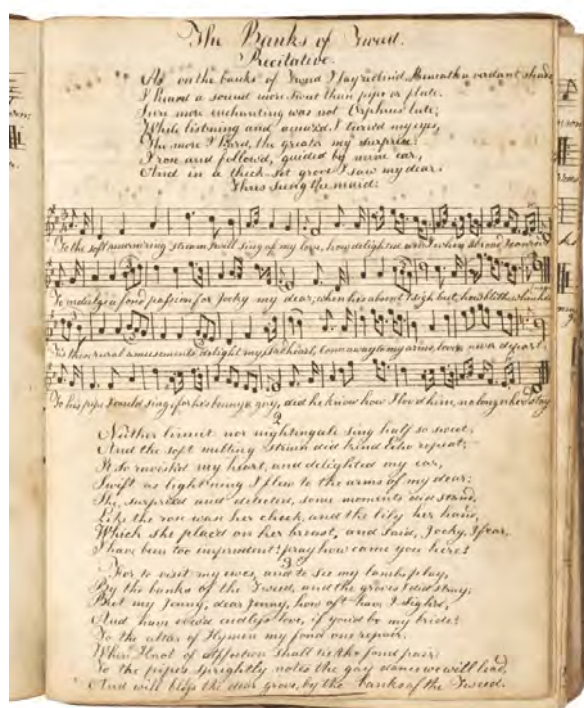 The Banks of Tweed.
Recitative.
As on the banks of Tweed I lay reclin'd, Beneath a verdant shade
I heard a sound more sweet than pipe or flute.
Sure more enchanting was not Orpheus lute;
While listening and amaz'd I turned my eyes,
The more I heard, the greater my surprise.
I rose and follow'd, guided by mine ear,
And in a thick-set grove I saw my dear.
Thus sung the maid.
To the soft murmuring stream I will sing of my love, how delighted am I when abroad I can
To indulge a fond passion for Jocky my dear, when he's absent I sigh but, how blithe when he's
Tis these rural amusements delight my heart, Come away to my arms, love, never depart
To his pipe I could sing, for he's bonny & gay, did he know how I lov'd him, no longer he'd stay
2
Neither linnet nor nightingale sing half so sweet;
And the soft melting strain did kind Echo repeat;
It so ravish'd my heart, and delighted my ear,
Swift as lightning I flew to the arms of my dear:
She, surpriz'd and detected, some moments did stand,
Like the rose was her cheek, and the lily her hand,
Which she plac'd on her breast, and said, Jocky, I fear,
I have been too imprudent! pray how came you here?
3
For to visit my ewes, and to see my lambs play,
By the banks of the Tweed, and the groves I did stray;
But my Jenny, dear Jenny, how oft have I sigh'd,
And have vow'd endless love, if you'd be my bride!
To the altar of Hymen my fond one repair,
Where Knot of Affection shall tie the fond pair:
To the pipe's sprightly notes the gay dance we will lead,
And will bless the dear grove, by the banks of the Tweed.